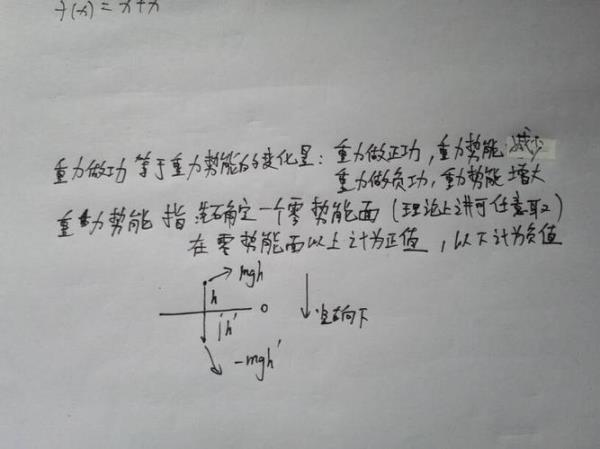 f(x) = x+x
重力做功等于重力势能的变化量：重力做正功，重力势能减少
重力做负功，重力势能增大
重力势能指先确定一个零势能面（理论上讲可任意取）
在零势能面以上计为正值，以下计为负值
mgh
h
h'
0
竖直向下
-mgh'